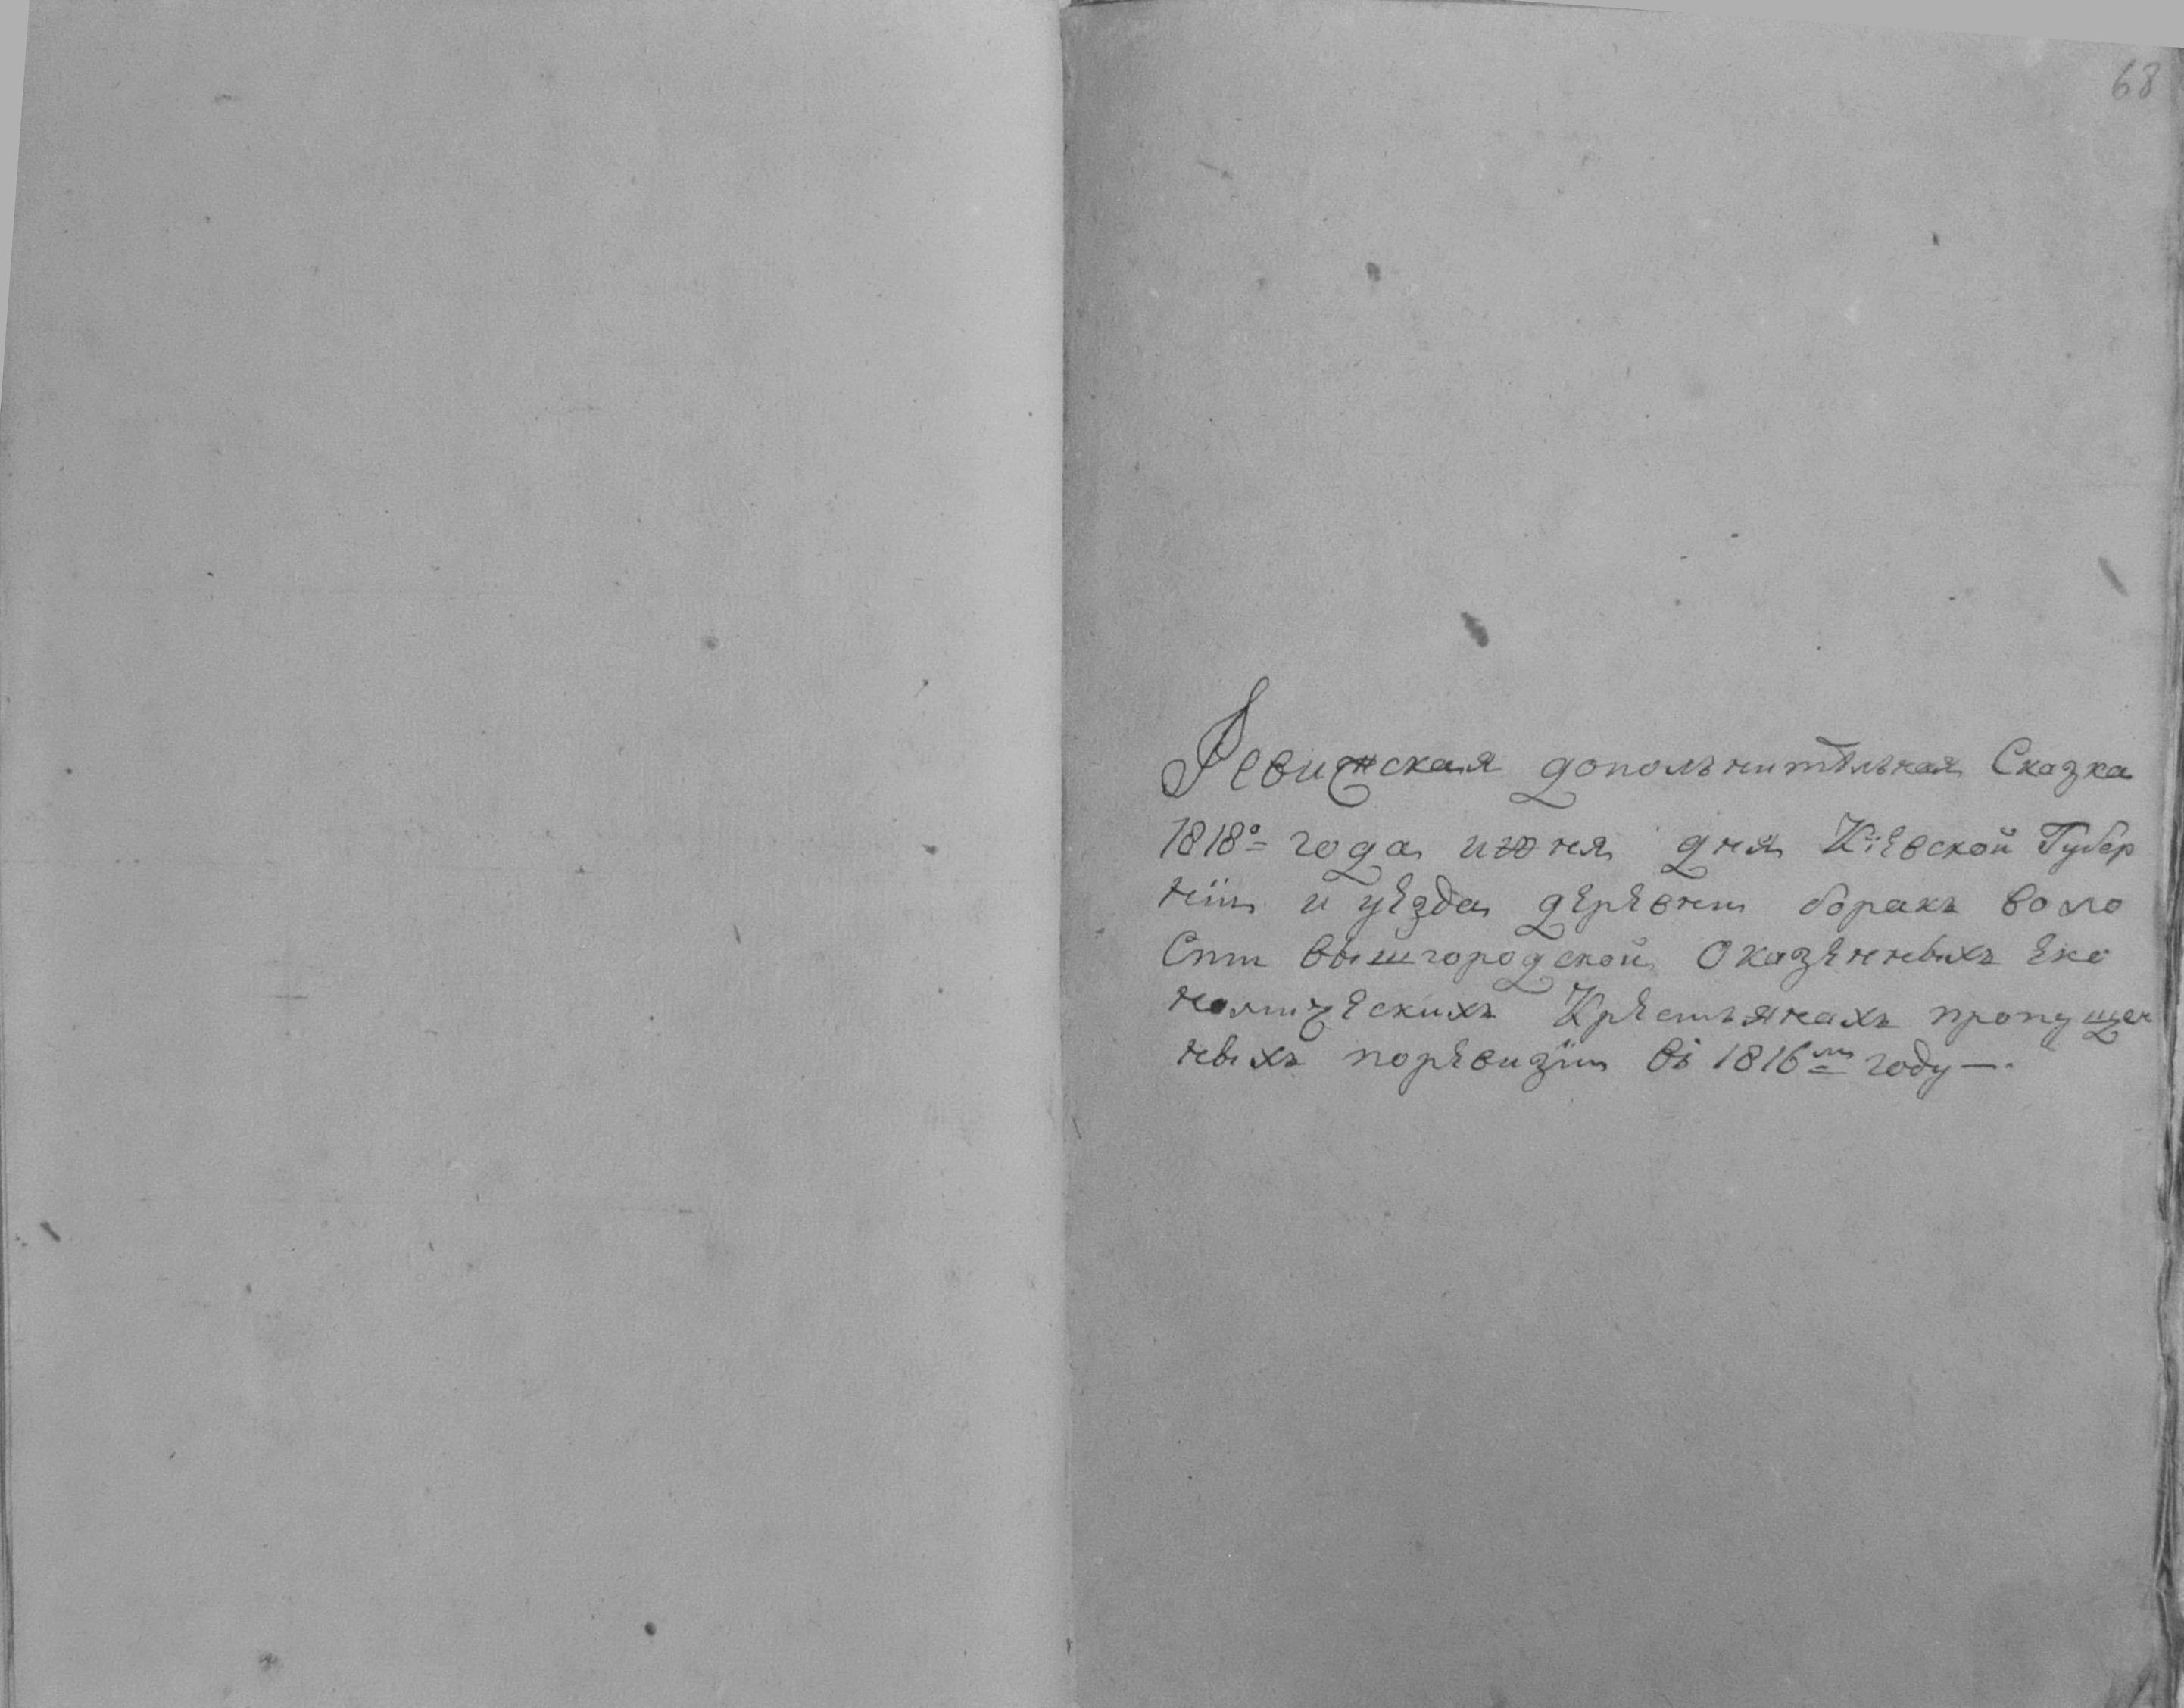 68
Ревижская дополънителъная Сказка
1818º года июня дня Кіевской Губер
ніи и уезда деревни боракъ воло
Сти вышгородской Оказенныхъ еко
номическихъ Крестьянахъ пропущен
ныхъ поревизіи въ 1816м году —.